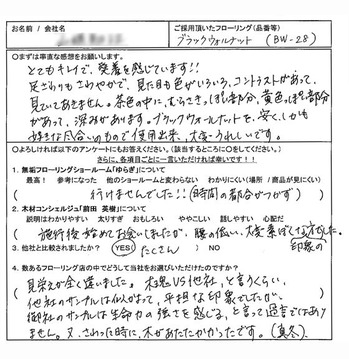 お名前 / 会社名
ご採用頂いたフローリング(品番等)
ブラックウォルナット (BW-28)
○まずは率直な感想をお願いします。
とてもキレイで、発着を感じています!!
足ざわりもさわやかで、見た目も色がいろいろ、コントラストがあって、
見ていてあきません。茶色の中に、むらさきっぽい部分、黄色っぽい部分
があって、深みがあります。ブラックウォルナットを、安く、しかも
好きな風合いのもので使用出来、大変うれしいです。
○よろしければ以下のアンケートにもお答えください。(該当するところに○をしてください。)
さらに、各項目ごとに一言いただければ幸いです!!
1. 無垢フローリングショールーム「ゆらぎ」について
最高! 参考になった 他のショールームと変わらない わかりにくい(場所 / 商品が見にくい)
( 行けませんでした!!(時間の都合がつかず) )
2. 木材コンシェルジュ「前田 英樹」について
説明はわかりやすい 太りすぎ おもしろい ややこしい 話しやすい 心配だ
( 施行後始めてお会いしましたが、腰の低い、大変素ぼくな方でした。 )
印象の
3. 他社と比較されましたか? (YES) たくさん ) NO
4. 数あるフローリング店の中でどうして当社をお選びいただけたのですか?
( 見栄えが全く違いました。 VS他社、と言うくらい、
他社のサンプルは似かよって、平担な印象でしたが、
御社のサンプルは生命力の強さを感じる、と言って過言ではあり
ません。又、さわった時に、木があたたかかったです。(真冬) )